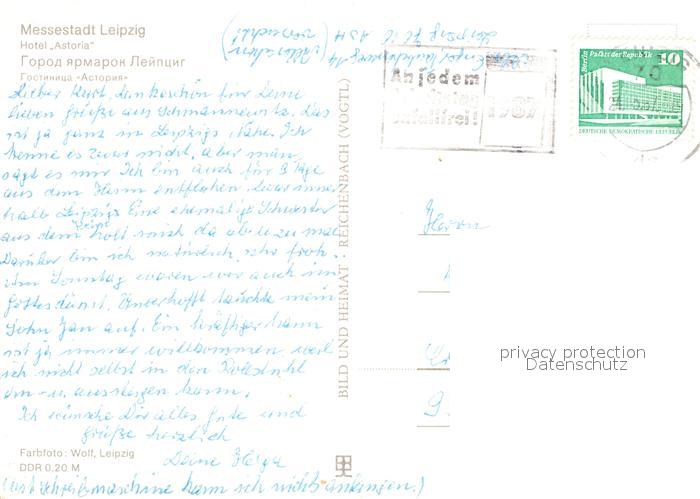 Messestadt Leipzig
Hotel „Astoria“
Город ярмарок Лейпциг
Гостиница «Астория»
Lieber Kurt, dankeschön für Deine
lieben Grüße aus Schmannewitz. Das
ist ja ganz in Leipzigs Nähe. Ich
kenne es zwar nicht, aber man
sagt es mir. Ich bin auch für 3 Tage
aus dem Heim entflohen, zwar inner
halb Leipzigs. Eine ehemalige Schwester
aus dem Heim holt mich da ab u. zu mal.
Darüber bin ich natürlich sehr froh.
Am Sonntag waren wir auch im
Gottesdienst. Unverhofft tauchte mein
Sohn Jan auf. Ein kräftiger Mann
ist ja immer willkommen, weil
ich nicht selbst in den Rollstuhl
ein- u. aussteigen kann.
Ich wünsche Dir alles Gute und
Grüße herzlich
Deine Helga
(mit Schreibmaschine kann ich nichts anfangen.)
Farbfoto: Wolf, Leipzig
DDR 0,20 M
BILD UND HEIMAT · REICHENBACH (VOGTL)
An jedem
unfallfrei
1987
Berlin Palast der Republik
10
DEUTSCHE DEMOKRATISCHE REPUBLIK
Herrn
privacy protection
Datenschutz